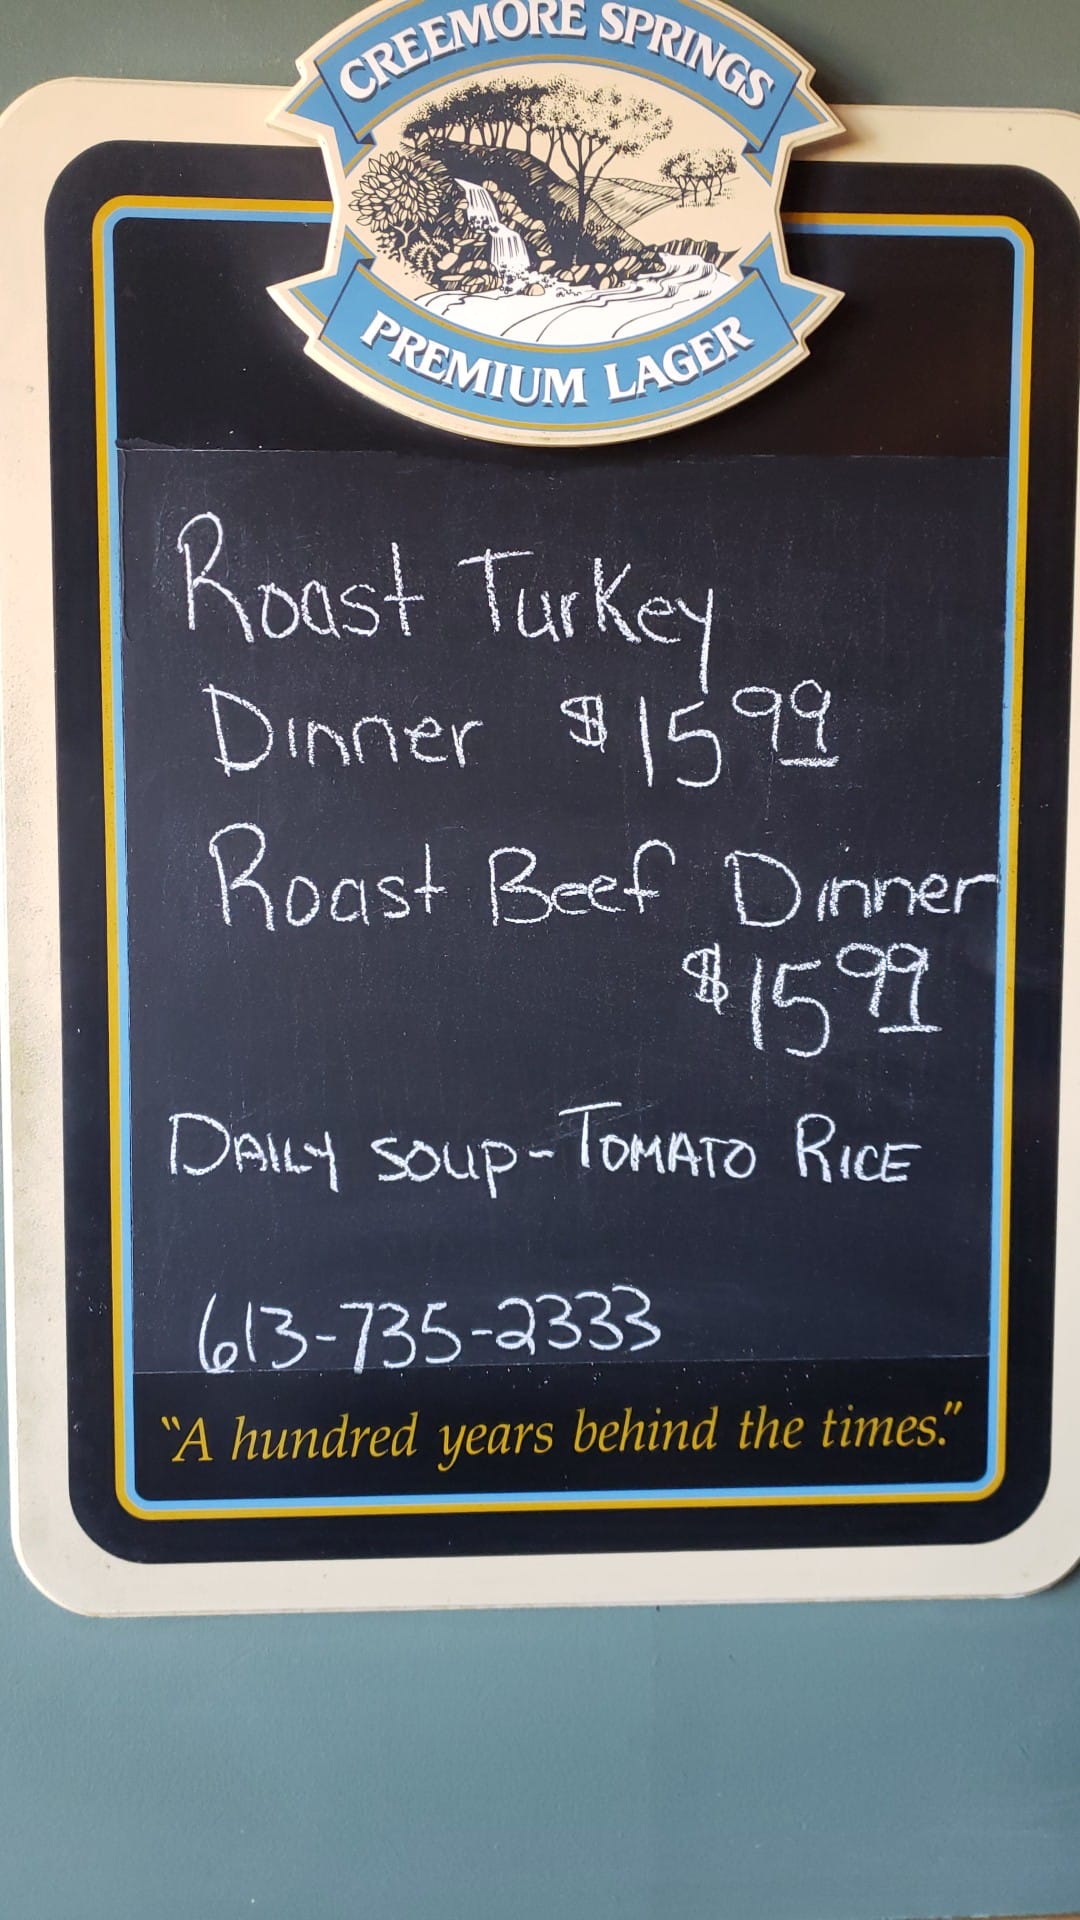 CREEMORE SPRINGS
PREMIUM LAGER
Roast Turkey
Dinner $15 99
Roast Beef Dinner
$15 99
DAILY SOUP - TOMATO RICE
613-735-2333
"A hundred years behind the times."